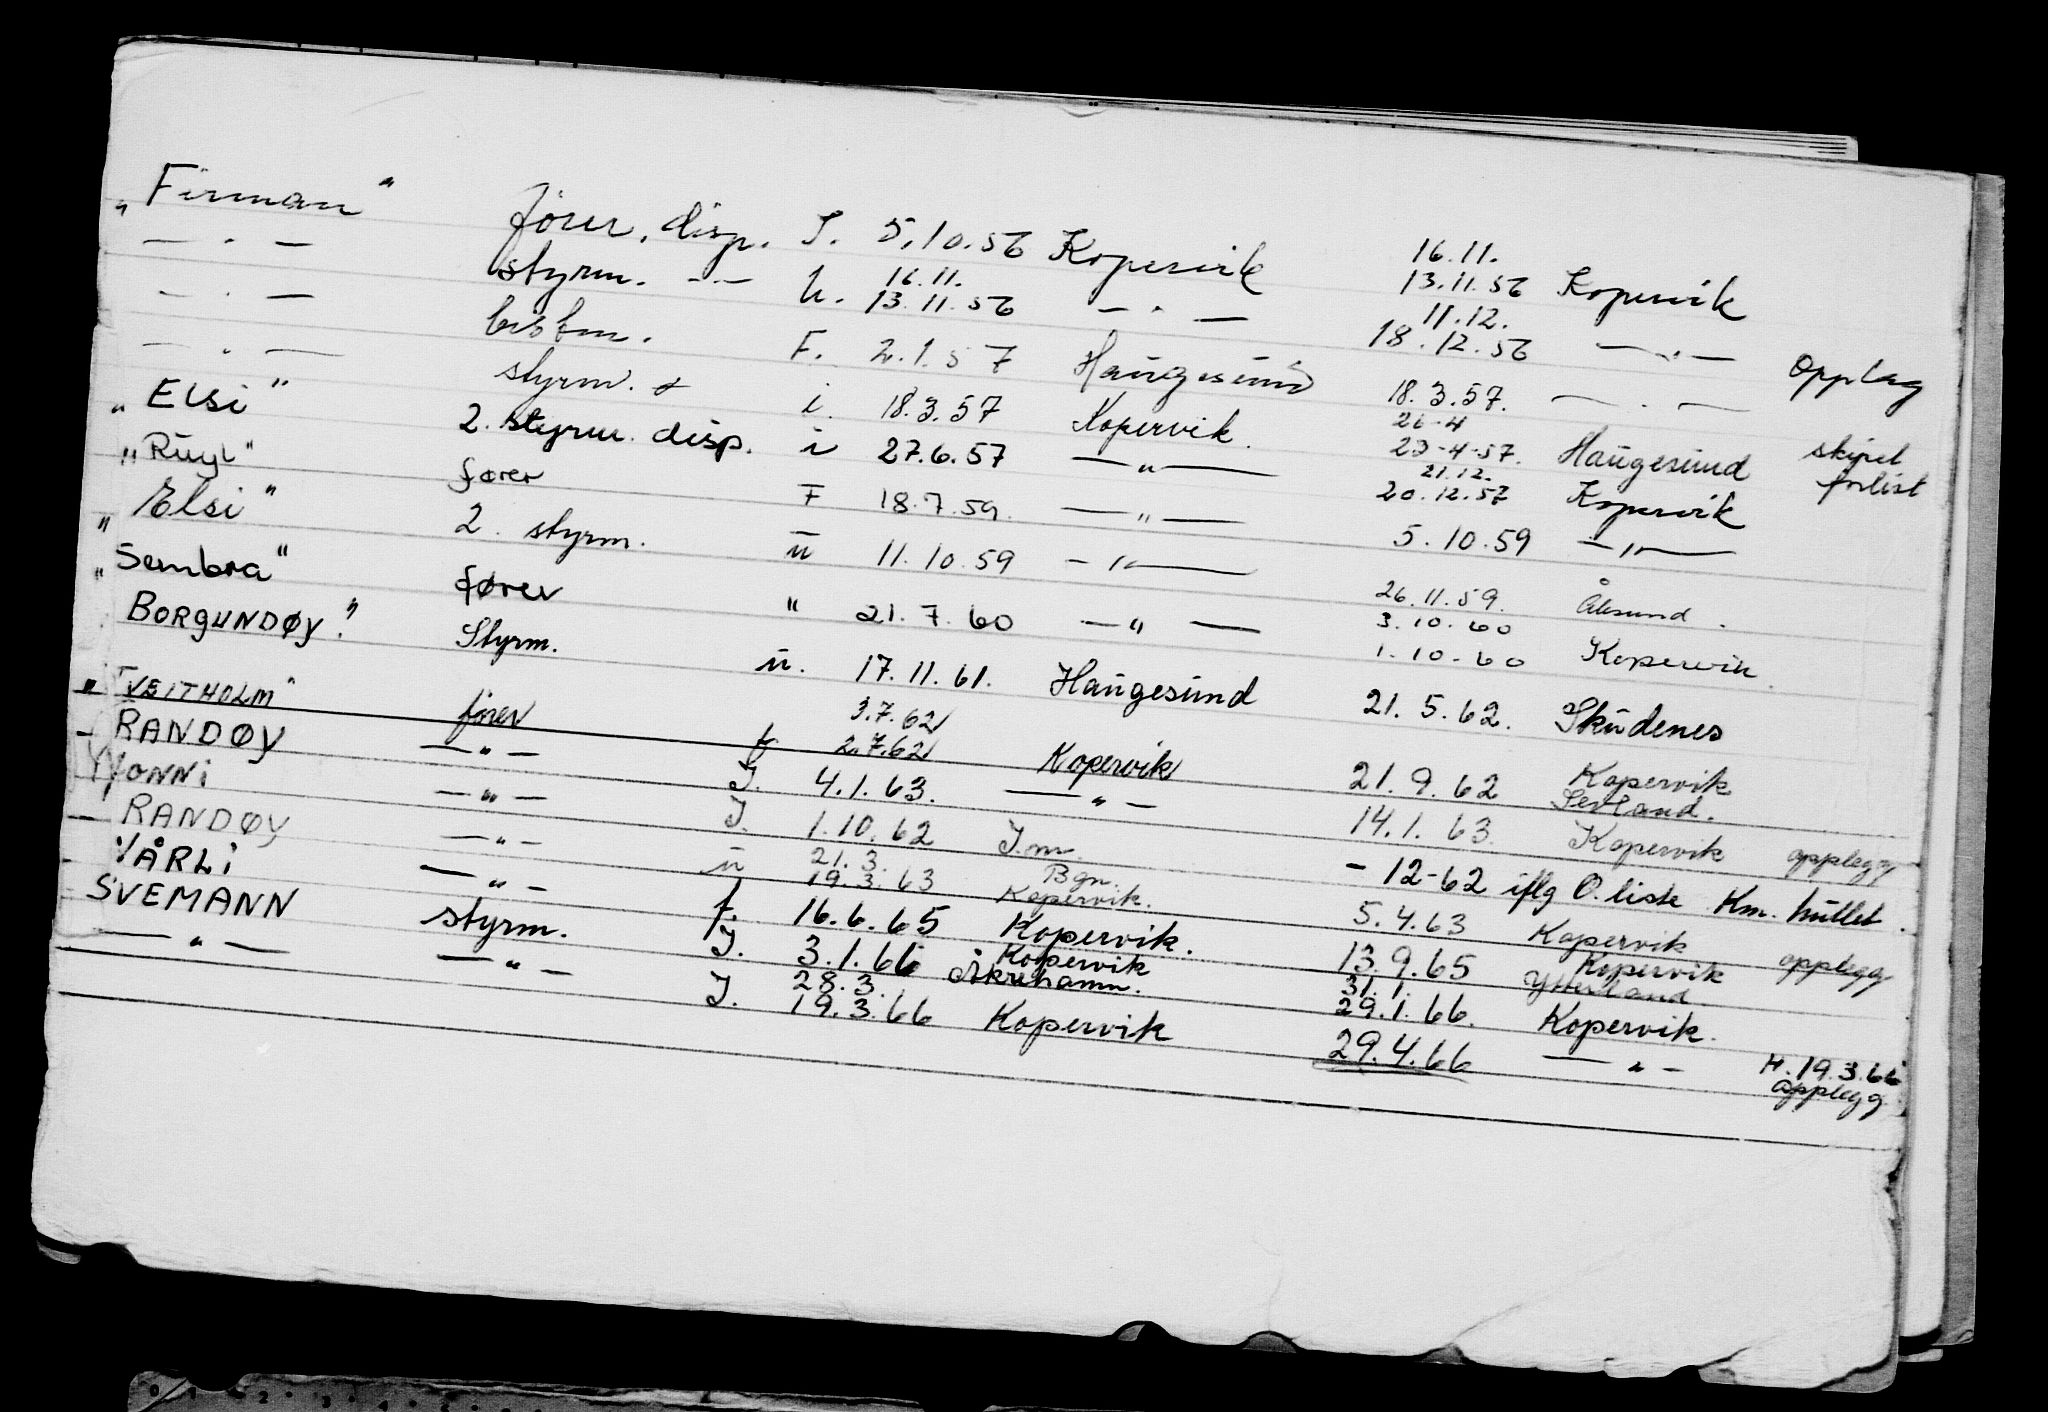 „ Firman " fører. disp. I. 5.10.56 Kopervik 16.11. 13.11.56 Kopervik
— " — styrm. -"- U. 16.11. 13.11.56 — " — 11.12. 18.12.56 — " — Opplag
— " — F. 2.1.57 Haugesund 18.3.57. — " —
— " — styrm. i. 18.3.57 Kopervik. 26-4 29-4-57. Haugesund skipet forlist
„ Elsi " 2. styrm. disp. i 27.6.57 — " — 21.12. 20.12.57 Kopervik
" " fører F 18.7.59. — " — 5.10.59 — " —
Elsi " 2. styrm. u 11.10.59 — " — 26.11.59. Ålesund.
" Sembra " fører " 21.7.60 — " — 3.10.60 1.10.60 Kopervik.
" BORGUNDØY". Styrm. u. 17.11.61. Haugesund 21.5.62. Skudenes
" TVEITHOLM " fører f 3.7.62 2.7.62 Kopervik 21.9.62 Kopervik
- RANDØY — " — I. 4.1.63. — " — 14.1.63. Kopervik opplegg
YVONNI — " — I. 1.10.62 I.m. - 12-62 iflg O. liste Km. hullet.
RANDØY — " — u 21.3. 19.3.63 Bgn. Kopervik. 5.4.63 Kopervik opplegg
VÅRLI — " — f. 16.6.65 Kopervik. 13.9.65 Kopervik
SVEMANN styrm. I. 3.1.66 Kopervik Åkrehamn. 31.1. 29.1.66. Ytterland. Kopervik.
— " — — " — I. 28.3. 19.3.66 Kopervik 29.4.66 — " — H. 19.3.66 opplegg